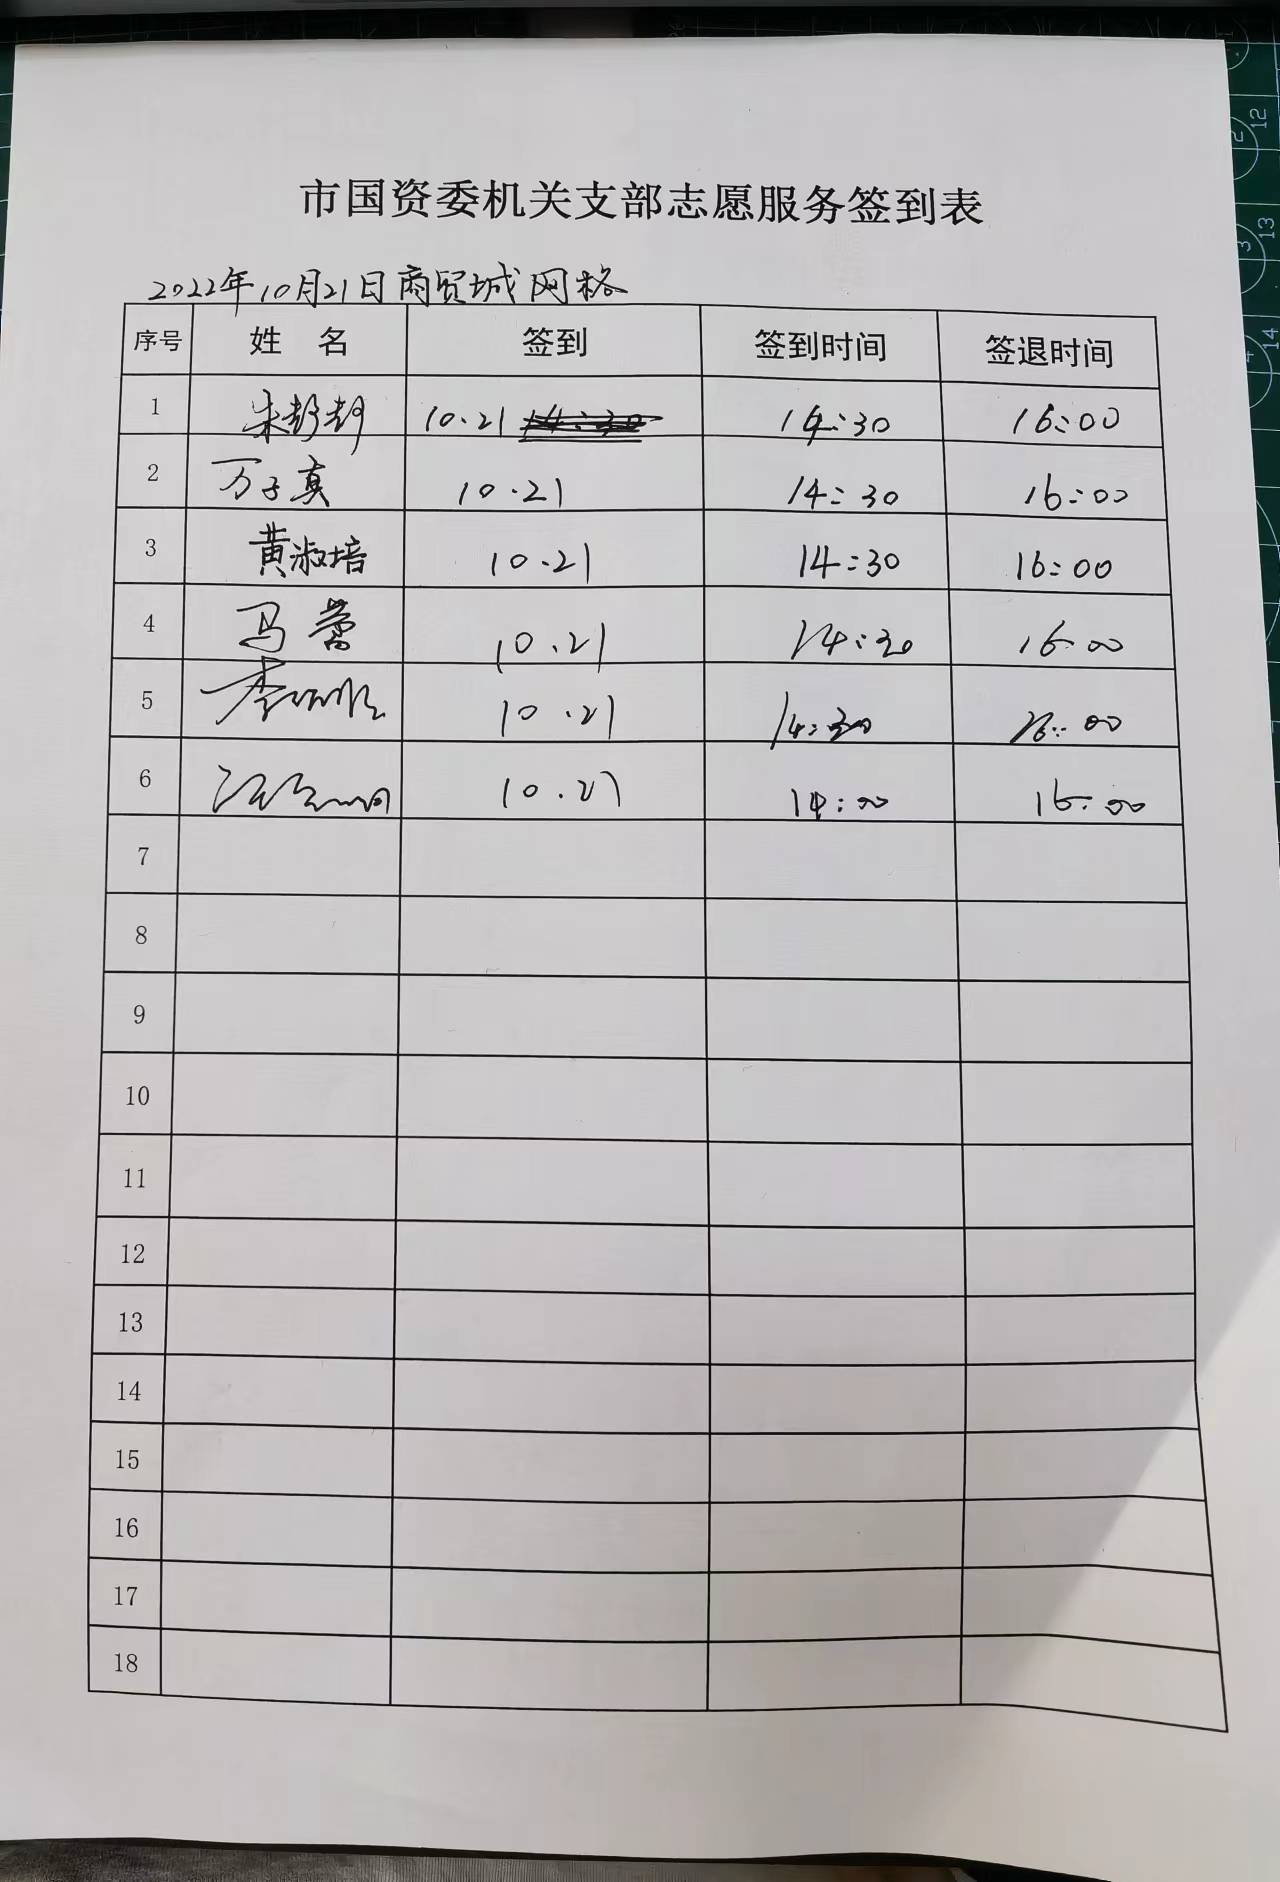 市国资委机关支部志愿服务签到表
2022年10月21日商贸城网格
序号 姓 名 签到 签到时间 签退时间
1 10.21 14:30 16:00
2 万子真 10.21 14:30 16:00
3 黄淑培 10.21 14:30 16:00
4 马蕾 10.21 14:30 16:00
5 10.21 14:30 16:00
6 10.21 14:00 16:00
7
8
9
10
11
12
13
14
15
16
17
18